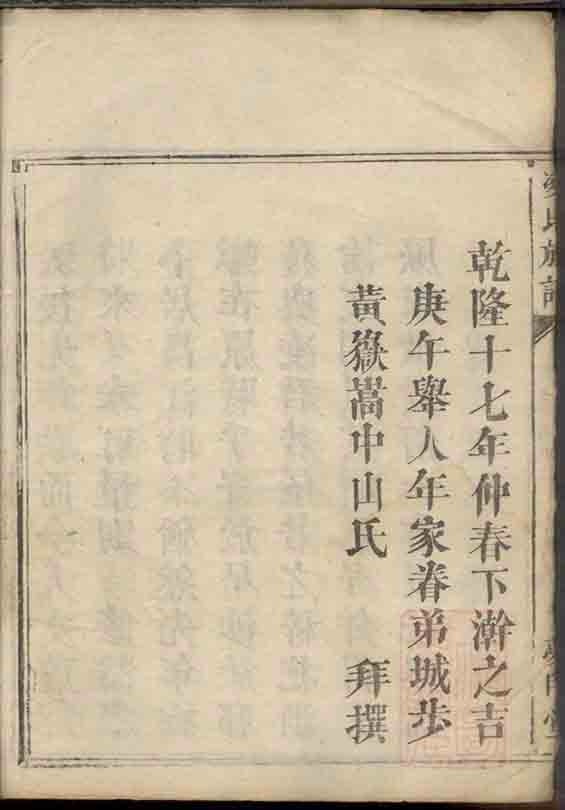 氏族譜
乾隆十七年仲春下澣之吉
庚午舉人年家眷弟城步
黃嶽嵩中山氏 拜撰